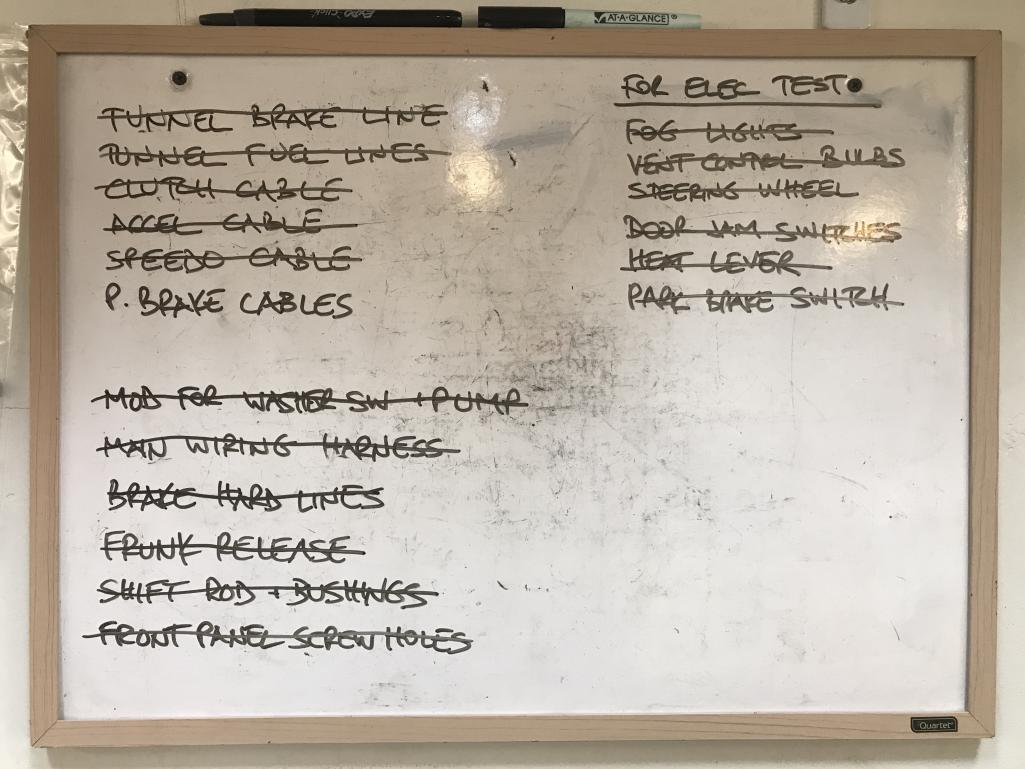 EXPO CLICK
AT-A-GLANCE®
TUNNEL BRAKE LINE
TUNNEL FUEL LINES
CLUTCH CABLE
ACCEL CABLE
SPEEDO CABLE
P. BRAKE CABLES
MOD FOR WASHER SW + PUMP
MAIN WIRING HARNESS
BRAKE HARD LINES
FRUNK RELEASE
SHIFT ROD + BUSHINGS
FRONT PANEL SCREW HOLES
FOR ELEC TEST
FOG LIGHTS
VENT CONTROL BULBS
STEERING WHEEL
DOOR JAM SWITCHES
HEAT LEVER
PARK BRAKE SWITCH
Quartet